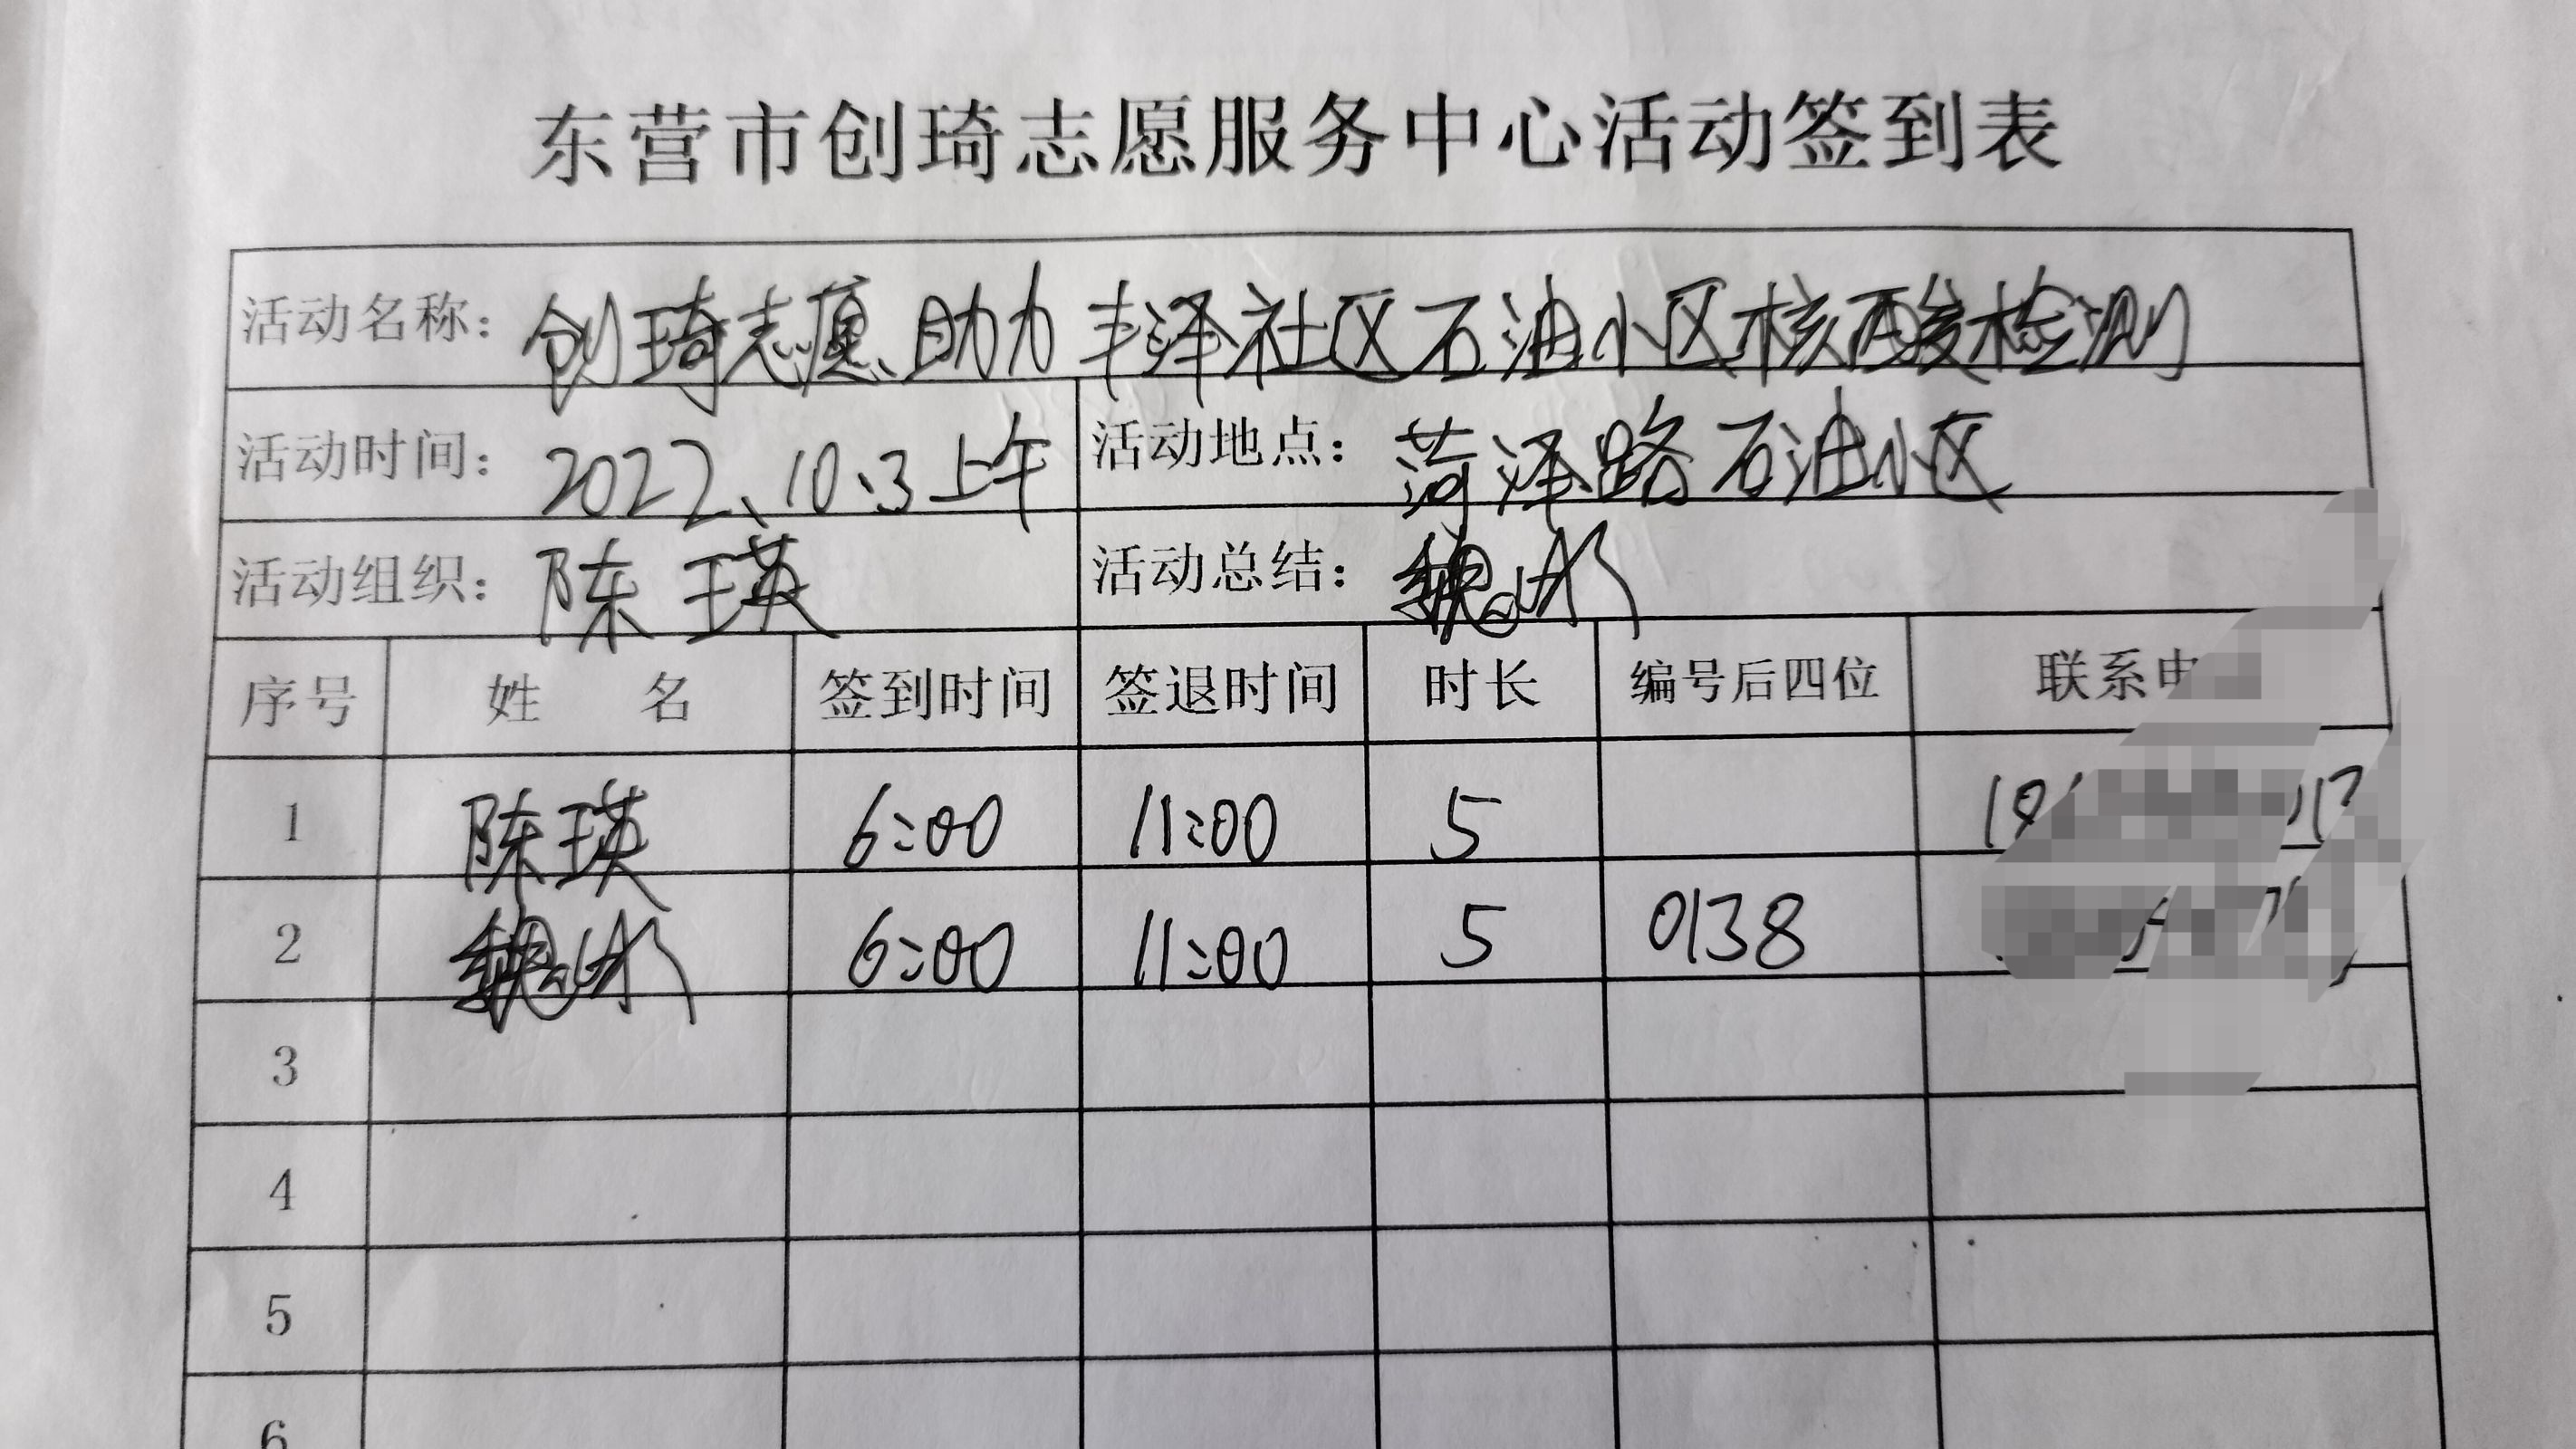 东营市创琦志愿服务中心活动签到表
活动名称：创琦志愿、助力丰泽社区石油小区核酸检测
活动时间：2022、10、3上午 活动地点：菏泽路石油小区
活动组织：陈瑛 活动总结：魏
序号 姓 名 签到时间 签退时间 时长 编号后四位 联系电
1 陈瑛 6:00 11:00 5
2 魏 6:00 11:00 5 0138
3
4
5
6